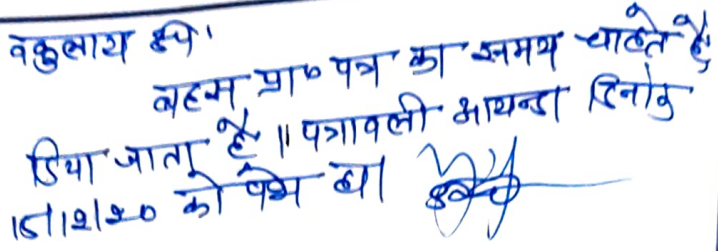 वकुलाय उपि।
बहस प्रा० पत्र का समय चाहते है,
दिया जाता है॥ पत्रावली आयन्दा दिनांक
15/12/20 को पेश हो।